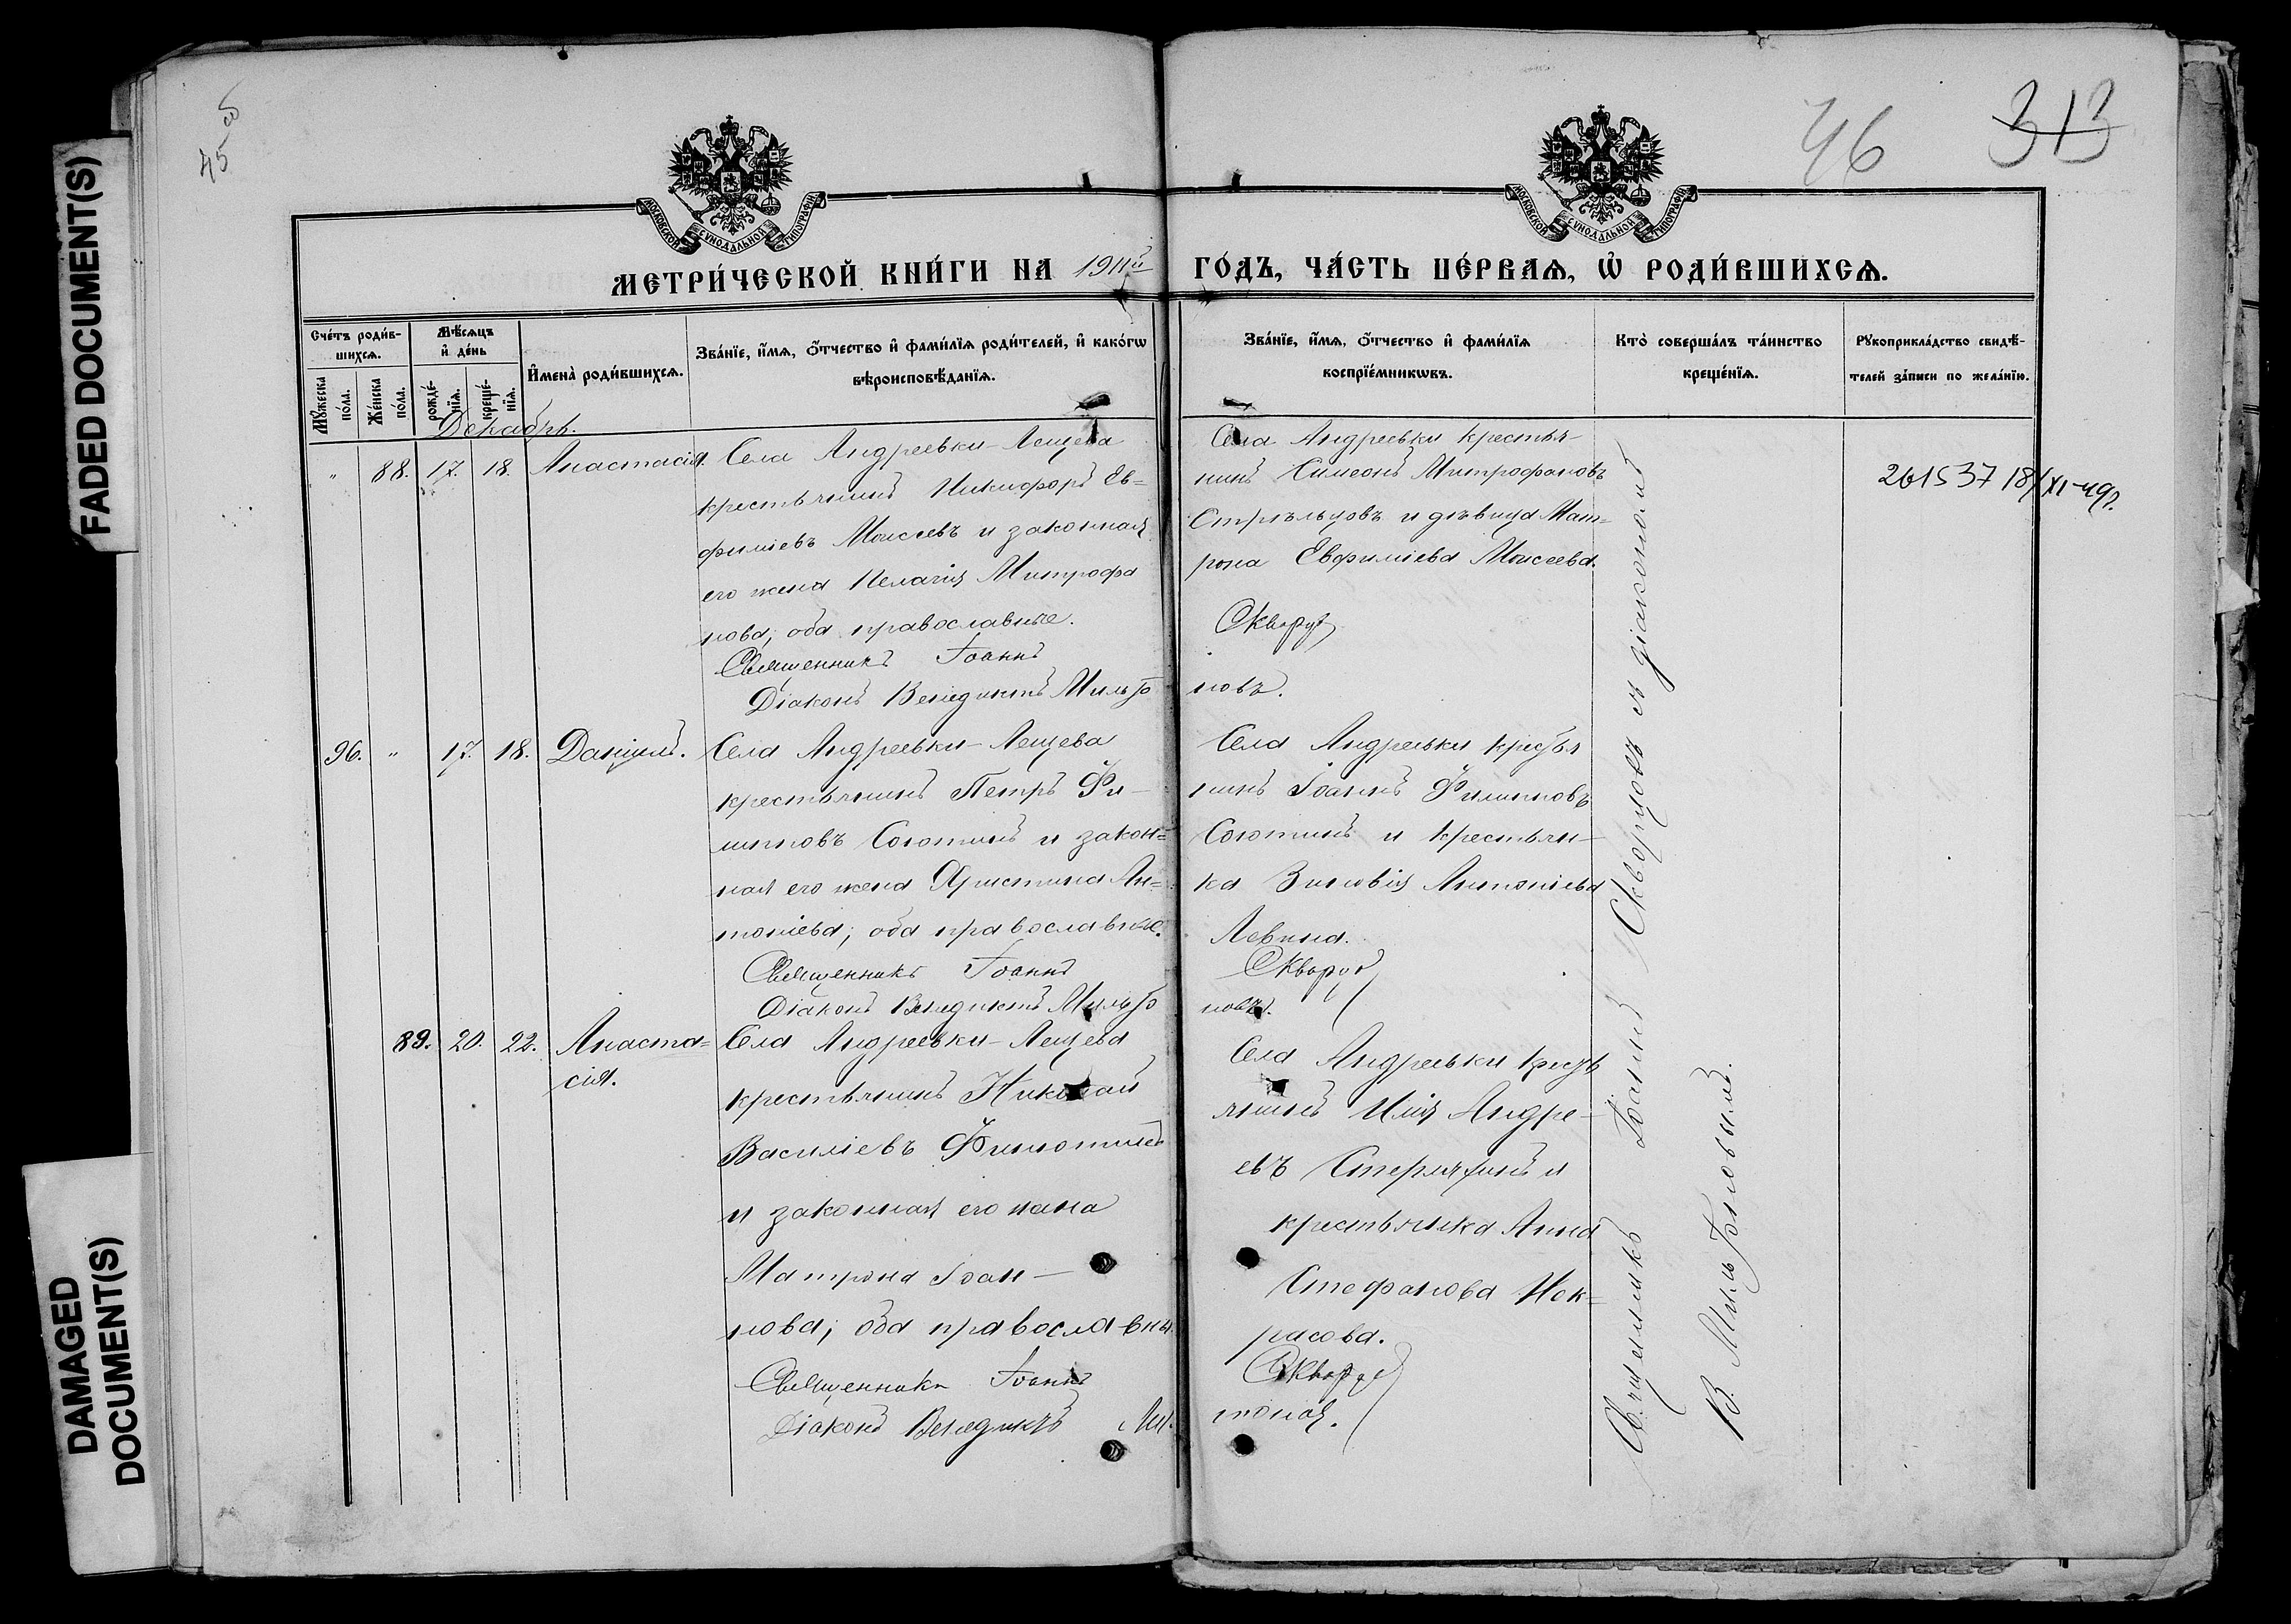 FADED DOCUMENT(S)
DAMAGED
DOCUMENT(S)
45
46
313
МОСКОВСКОЙ СѴНОДАЛЬНОЙ ТИПОГРАФІИ
МОСКОВСКОЙ СѴНОДАЛЬНОЙ ТИПОГРАФІИ
МЕТРИ́ЧЕСКОЙ КНИ́ГИ НА 1911й ГО́ДЪ, ЧА́СТЬ ПЕ́РВАѦ, Ѡ҆ РОДИ́ВШИХСѦ.
Сче́тъ роди́в-
шихсѧ.
Мꙋ́жеска
по́ла.
Же́нска
по́ла.
Мѣ́сѧцъ
и҆ де́нь
рожде́-
нїѧ.
креще́-
нїѧ.
И҆мена̀ роди́вшихсѧ.
Зва́нїе, и҆́мѧ, ѻ҆́тчество и҆ фами́лїѧ роди́телей, и҆ како́гѡ
вѣроисповѣ́данїѧ.
Зва́нїе, и҆́мѧ, ѻ҆́тчество и҆ фами́лїѧ
воспрїе́мникѡвъ.
Кто̀ соверша́лъ та́инство
креще́нїѧ.
Рꙋкоприкла́дство свидѣ́-
телей за́писи по жела́нїю.
Декабрь.
" 88. 17. 18. Анастасія.
Села Андреевки-Лещева
крестьянинъ Никифоръ Ев=
фиміевъ Моисеевъ и законная
его жена Пелагія Митрофа
нова; оба православные.
Священникъ Іоаннъ
Діаконъ Венедиктъ Мильто
Села Андреевки крестья-
нинъ Симеонъ Митрофановъ
Стрѣльцовъ и дѣвица Мат=
рона Евфиміева Моисеева.
Скворц
новъ.
261537 18/XI-49г.
96. " 17. 18. Даніилъ.
Села Андреевки-Лещева
крестьянинъ Петръ Фи-
липповъ Сютинъ и закон=
ная его жена Христина Ан=
тоніева; оба православные.
Священникъ Іоаннъ
Діаконъ Венедиктъ Мильто
Села Андреевки крестья
нинъ Іоаннъ Филипповъ
Сютинъ и крестьян-
ка Зиновія Антоніева
Левина.
Скворц
новъ.
89. 20. 22. Анаста=
сія.
Села Андреевки-Лещева
крестьянинъ Николай
Василіевъ
и законная его жена
Матрона Іоан-
нова; оба православны
Священникъ Іоаннъ
Діаконъ Венедиктъ Мил
Села Андреевки кресть
янинъ Илія Андре-
евъ и
крестьянка Анна
Стефанова Нек=
расова.
Скворц
Священникъ Іоаннъ Скворцовъ съ діакономъ
В. Мильтоновымъ.